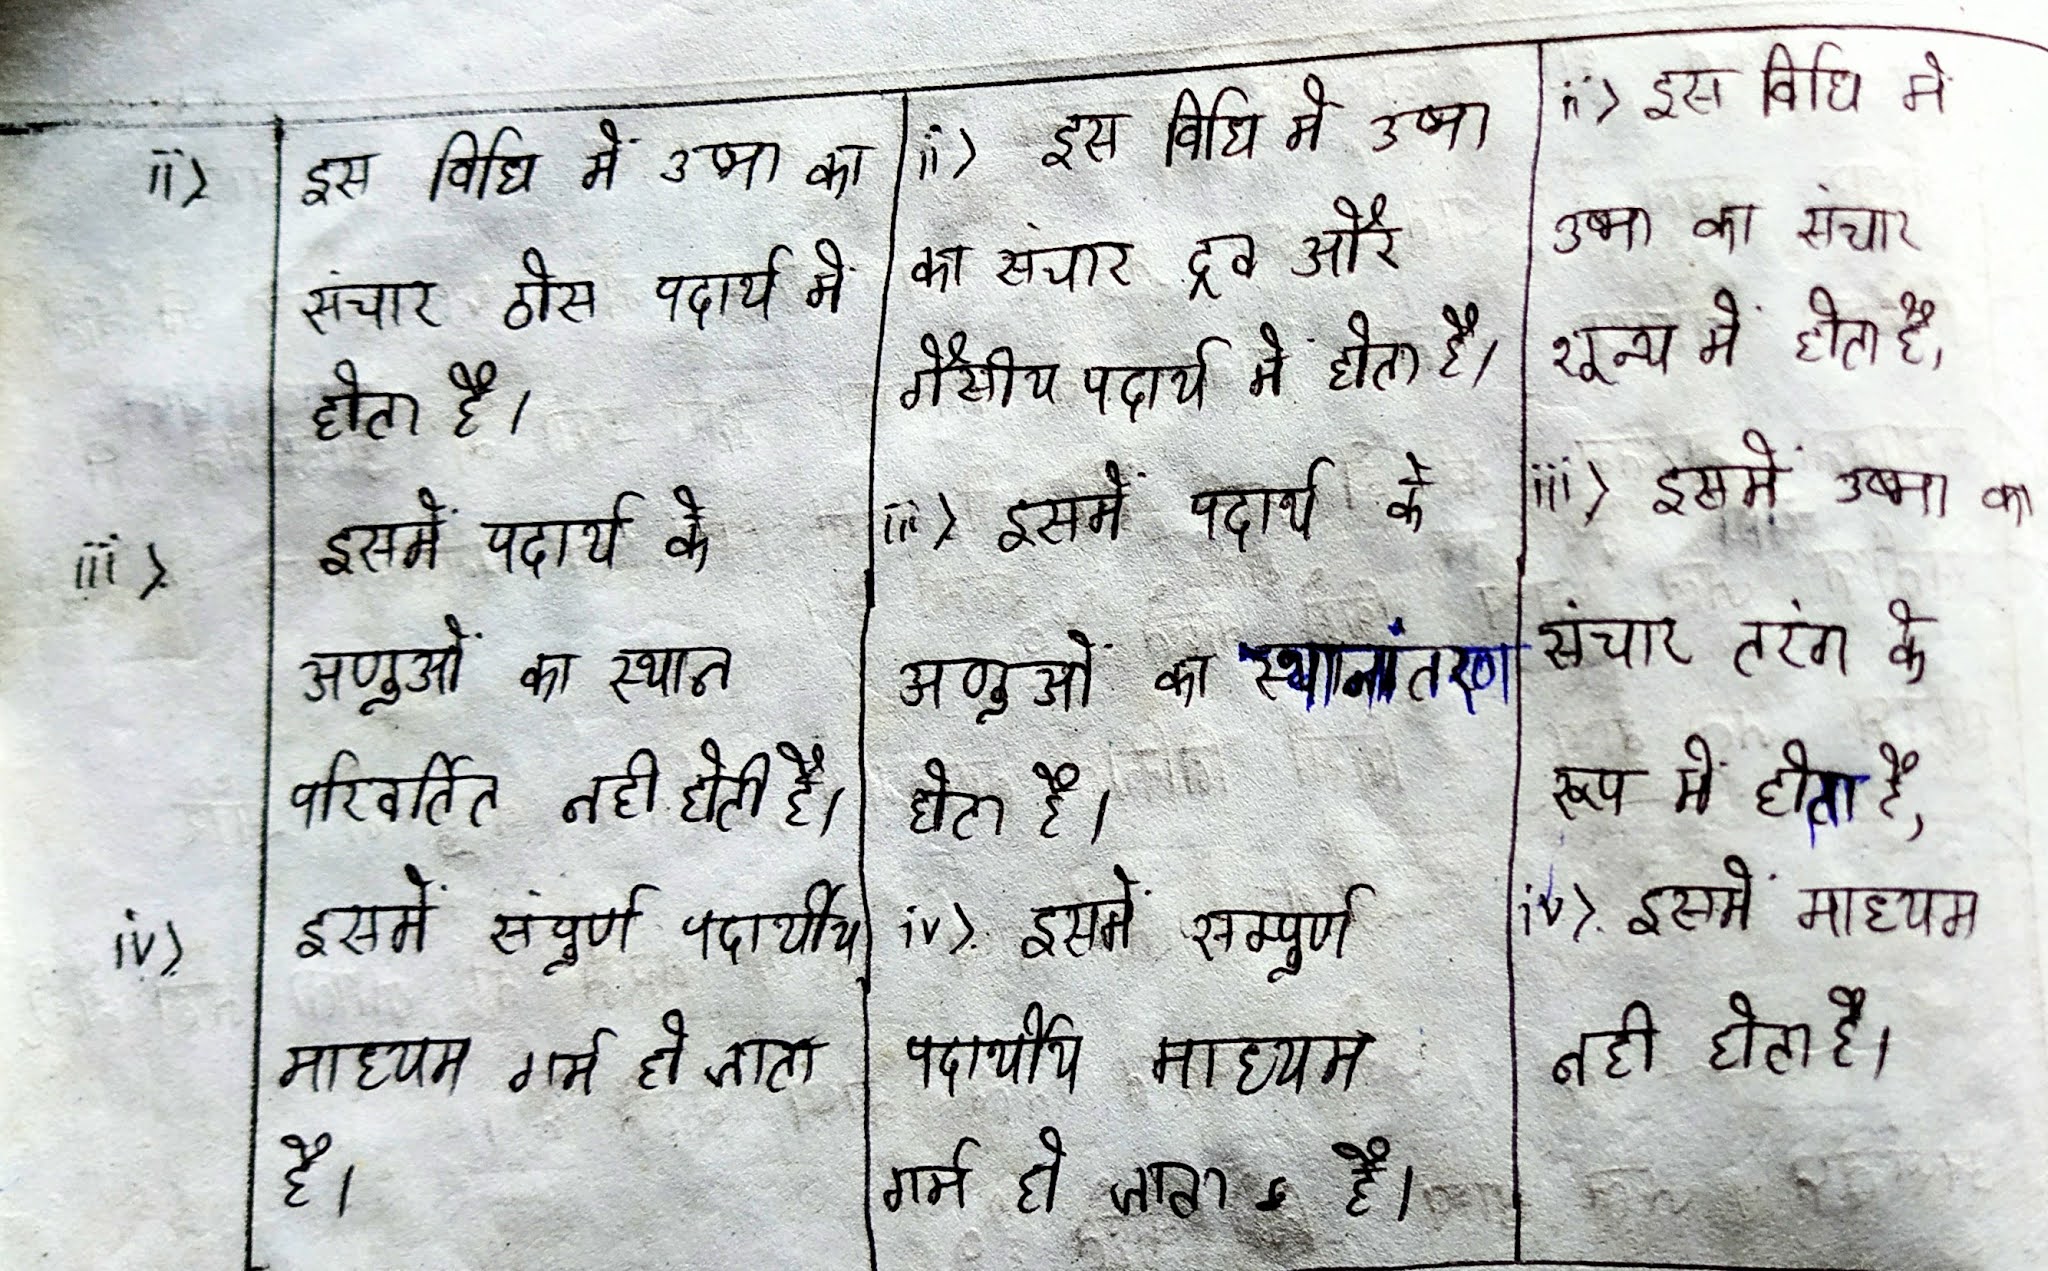 ii> इस विधि में उष्मा का
संचार ठोस पदार्थ में
होता है।
iii> इसमें पदार्थ के
अणुओं का स्थान
परिवर्तित नही होती है।
iv> इसमें संपूर्ण पदार्थीय
माध्यम गर्म हो जाता
है।
ii> इस विधि में उष्मा
का संचार द्रव और
गैसीय पदार्थ में होता है।
iii> इसमें पदार्थ के
अणुओं का स्थानांतरण
होता है।
iv> इसमें सम्पूर्ण
पदार्थीय माध्यम
गर्म हो जाता है।
ii> इस विधि में
उष्मा का संचार
शून्य में होता है,
iii> इसमें उष्मा का
संचार तरंग के
रूप में होता है,
iv> इसमें माध्यम
नही होता है।